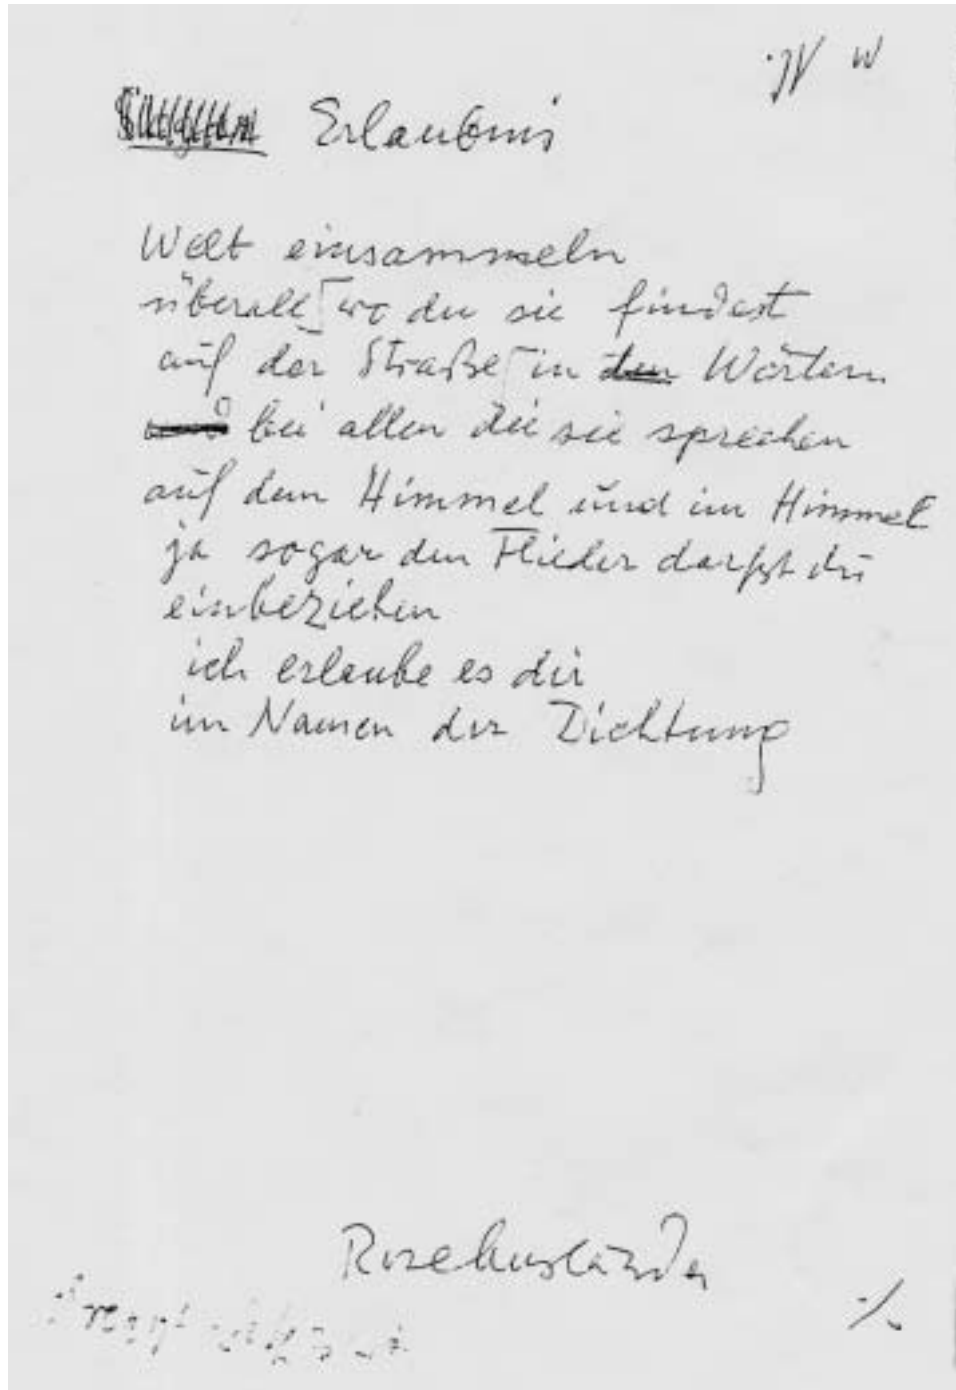 W
Erlaubnis
Welt einsammeln
überall wo du sie findest
auf der Straße in den Wörtern
und bei allen die sie sprechen
auf dem Himmel und im Himmel
ja sogar den Flieder darfst du
einbeziehen
ich erlaube es dir
im Namen der Dichtung
Rose Ausländer